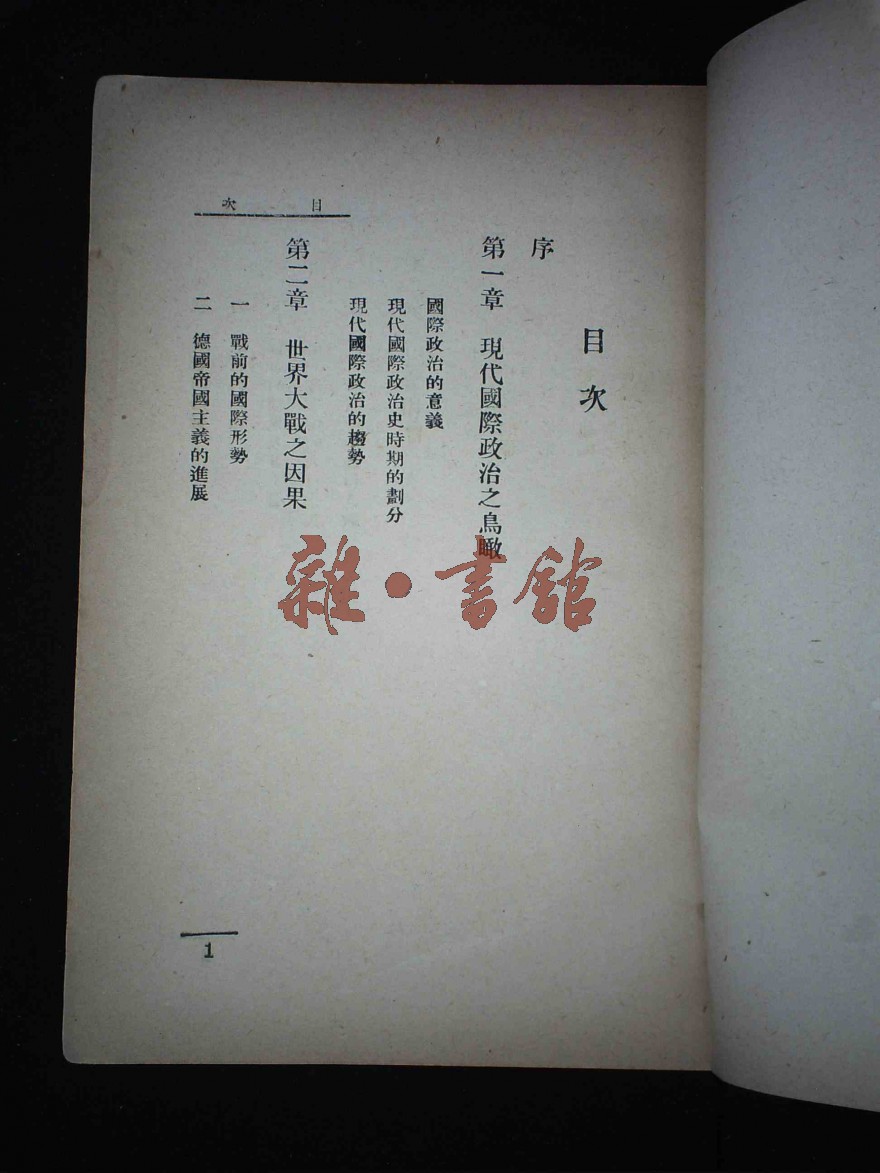 目次
目次
序
第一章　現代國際政治之鳥瞰
國際政治的意義
現代國際政治史時期的劃分
現代國際政治的趨勢
第二章　世界大戰之因果
一　戰前的國際形勢
二　德國帝國主義的進展
1
雜·書館